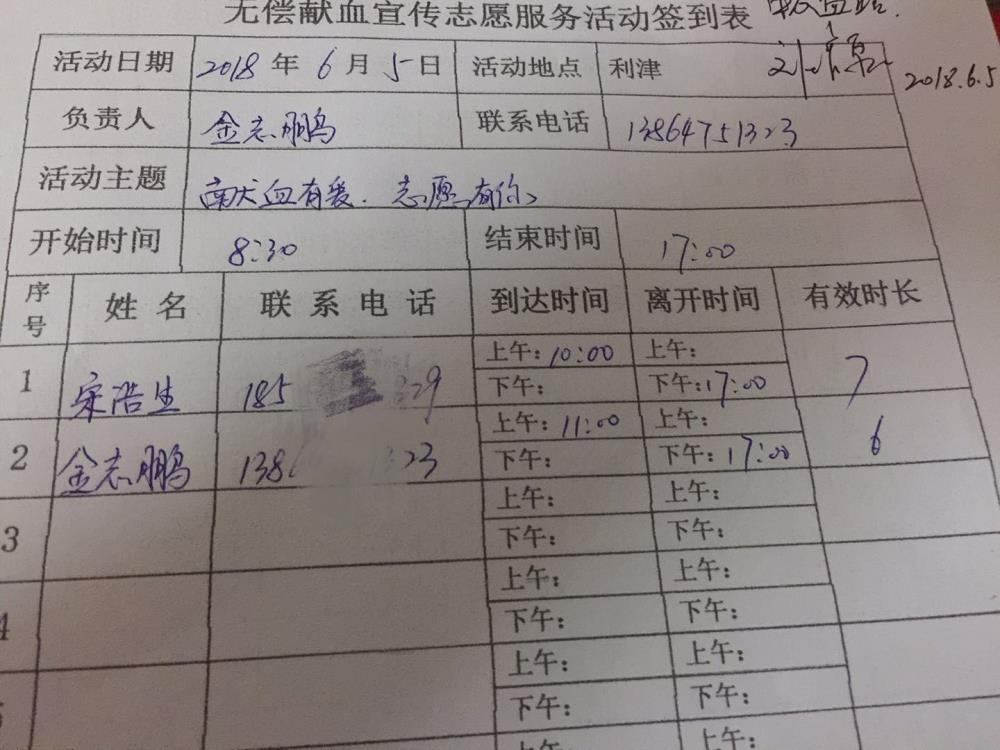 无偿献血宣传志愿服务活动签到表
活动日期 2018 年 6 月 5 日 活动地点 利津
2018.6.5
负责人 金志鹏 联系电话 13864751323
活动主题 献血有爱.志愿有你
开始时间 8:30 结束时间 17:00
序号 姓名 联系电话 到达时间 离开时间 有效时长
1 宋浩生 185 329 上午:10:00 上午: 7
下午: 下午:17:00
2 金志鹏 138 323 上午:11:00 上午: 6
下午: 下午:17:00
3 上午: 上午:
下午: 下午:
4 上午: 上午:
下午: 下午:
5 上午: 上午:
下午: 下午:
上午: 上午: